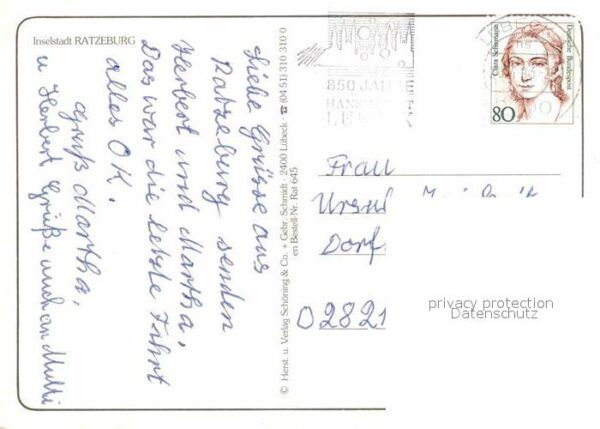 Inselstadt RATZEBURG
Liebe Grüsse aus
Ratzeburg senden
Herbert und Martha,
Das war die letzte Fahrt
alles OK.
Gruß Martha,
u Herbert Grüße auch an Mutti
© Herst. u. Verlag Schöning & Co. + Gebr. Schmidt · 2400 Lübeck · ☎ (04 51) 310 310 0
en Bestell-Nr. Rat 645
850 JAHRE
HANS
Clara Schumann
Deutsche Bundespost
80
Frau
Dorf
O 2821
privacy protection
Datenschutz